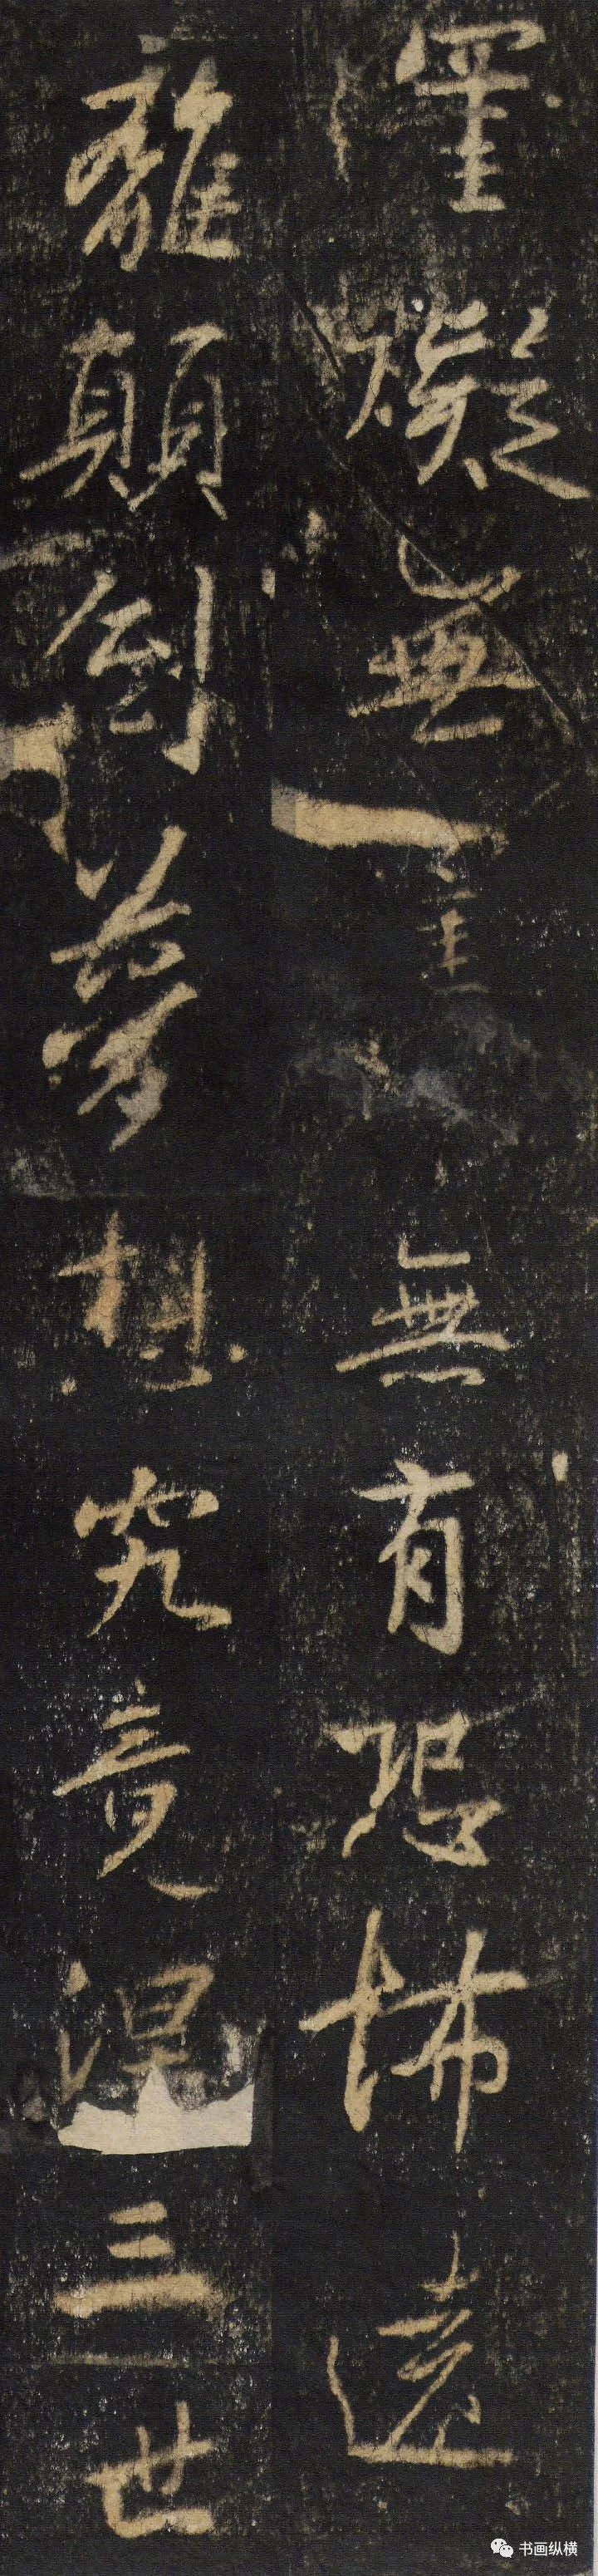 罣礙無罣無有恐怖遠
離顛倒夢想究竟涅三世
书画纵横